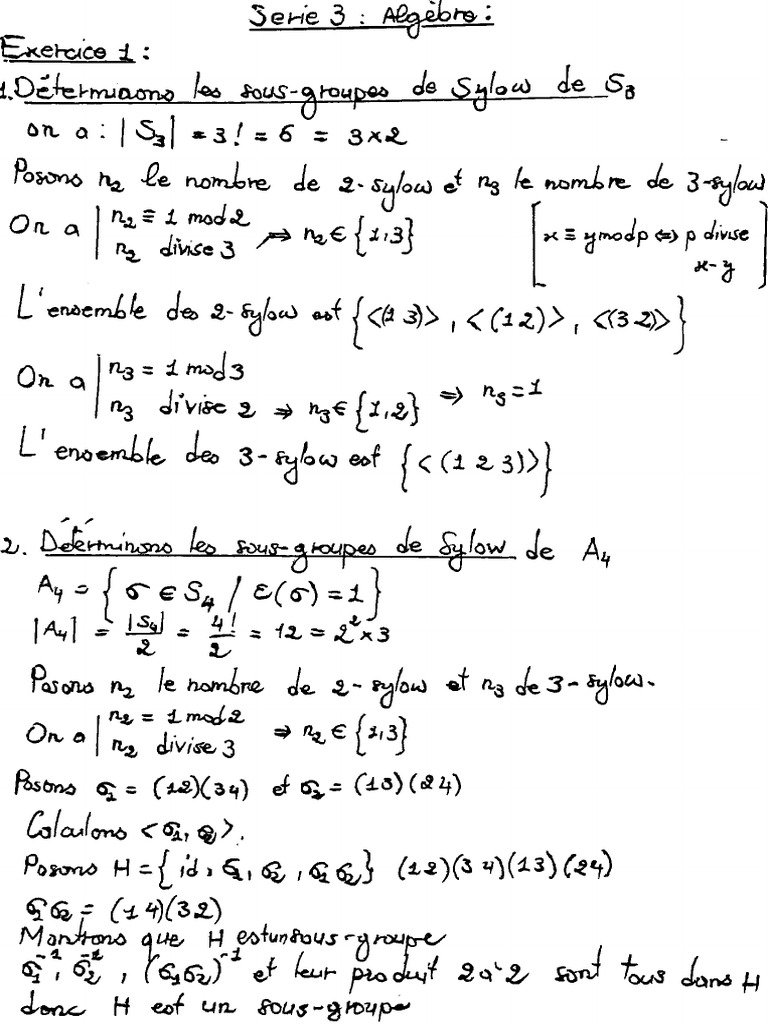 Serie 3 : Algèbre :
Exercice 1 :
1. Déterminons les sous-groupes de Sylow de S₃
on a : |S₃| = 3! = 6 = 3×2
Posons n₂ le nombre de 2-sylow et n₃ le nombre de 3-sylow
On a | n₂ ≡ 1 mod 2
n₂ divise 3 ⇒ n₂ ∈ {1,3}
[x ≡ y mod p ⇔ p divise
x-y]
L'ensemble des 2-sylow est {<(1 3)>, <(1 2)>, <(3 2)>}
On a | n₃ = 1 mod 3
n₃ divise 2 ⇒ n₃ ∈ {1,2} ⇒ n₃ = 1
L'ensemble des 3-sylow est {<(1 2 3)>}
2. Déterminons les sous-groupes de Sylow de A₄
A₄ = {σ ∈ S₄ / ε(σ) = 1}
|A₄| = |S₄|/2 = 4!/2 = 12 = 2² × 3
Posons n₂ le nombre de 2-sylow et n₃ de 3-sylow.
On a | n₂ = 1 mod 2
n₂ divise 3 ⇒ n₂ ∈ {1,3}
Posons σ₁ = (12)(34) et σ₂ = (13)(24)
Calculons <σ₁, σ₂>.
Posons H = {id, σ₁, σ₂, σ₁σ₂} (12)(34)(13)(24)
σ₁σ₂ = (14)(32)
Montrons que H est un sous-groupe
σ₁⁻¹, σ₂⁻¹, (σ₁σ₂)⁻¹ et leur produit 2 à 2 sont tous dans H
donc H est un sous-groupe